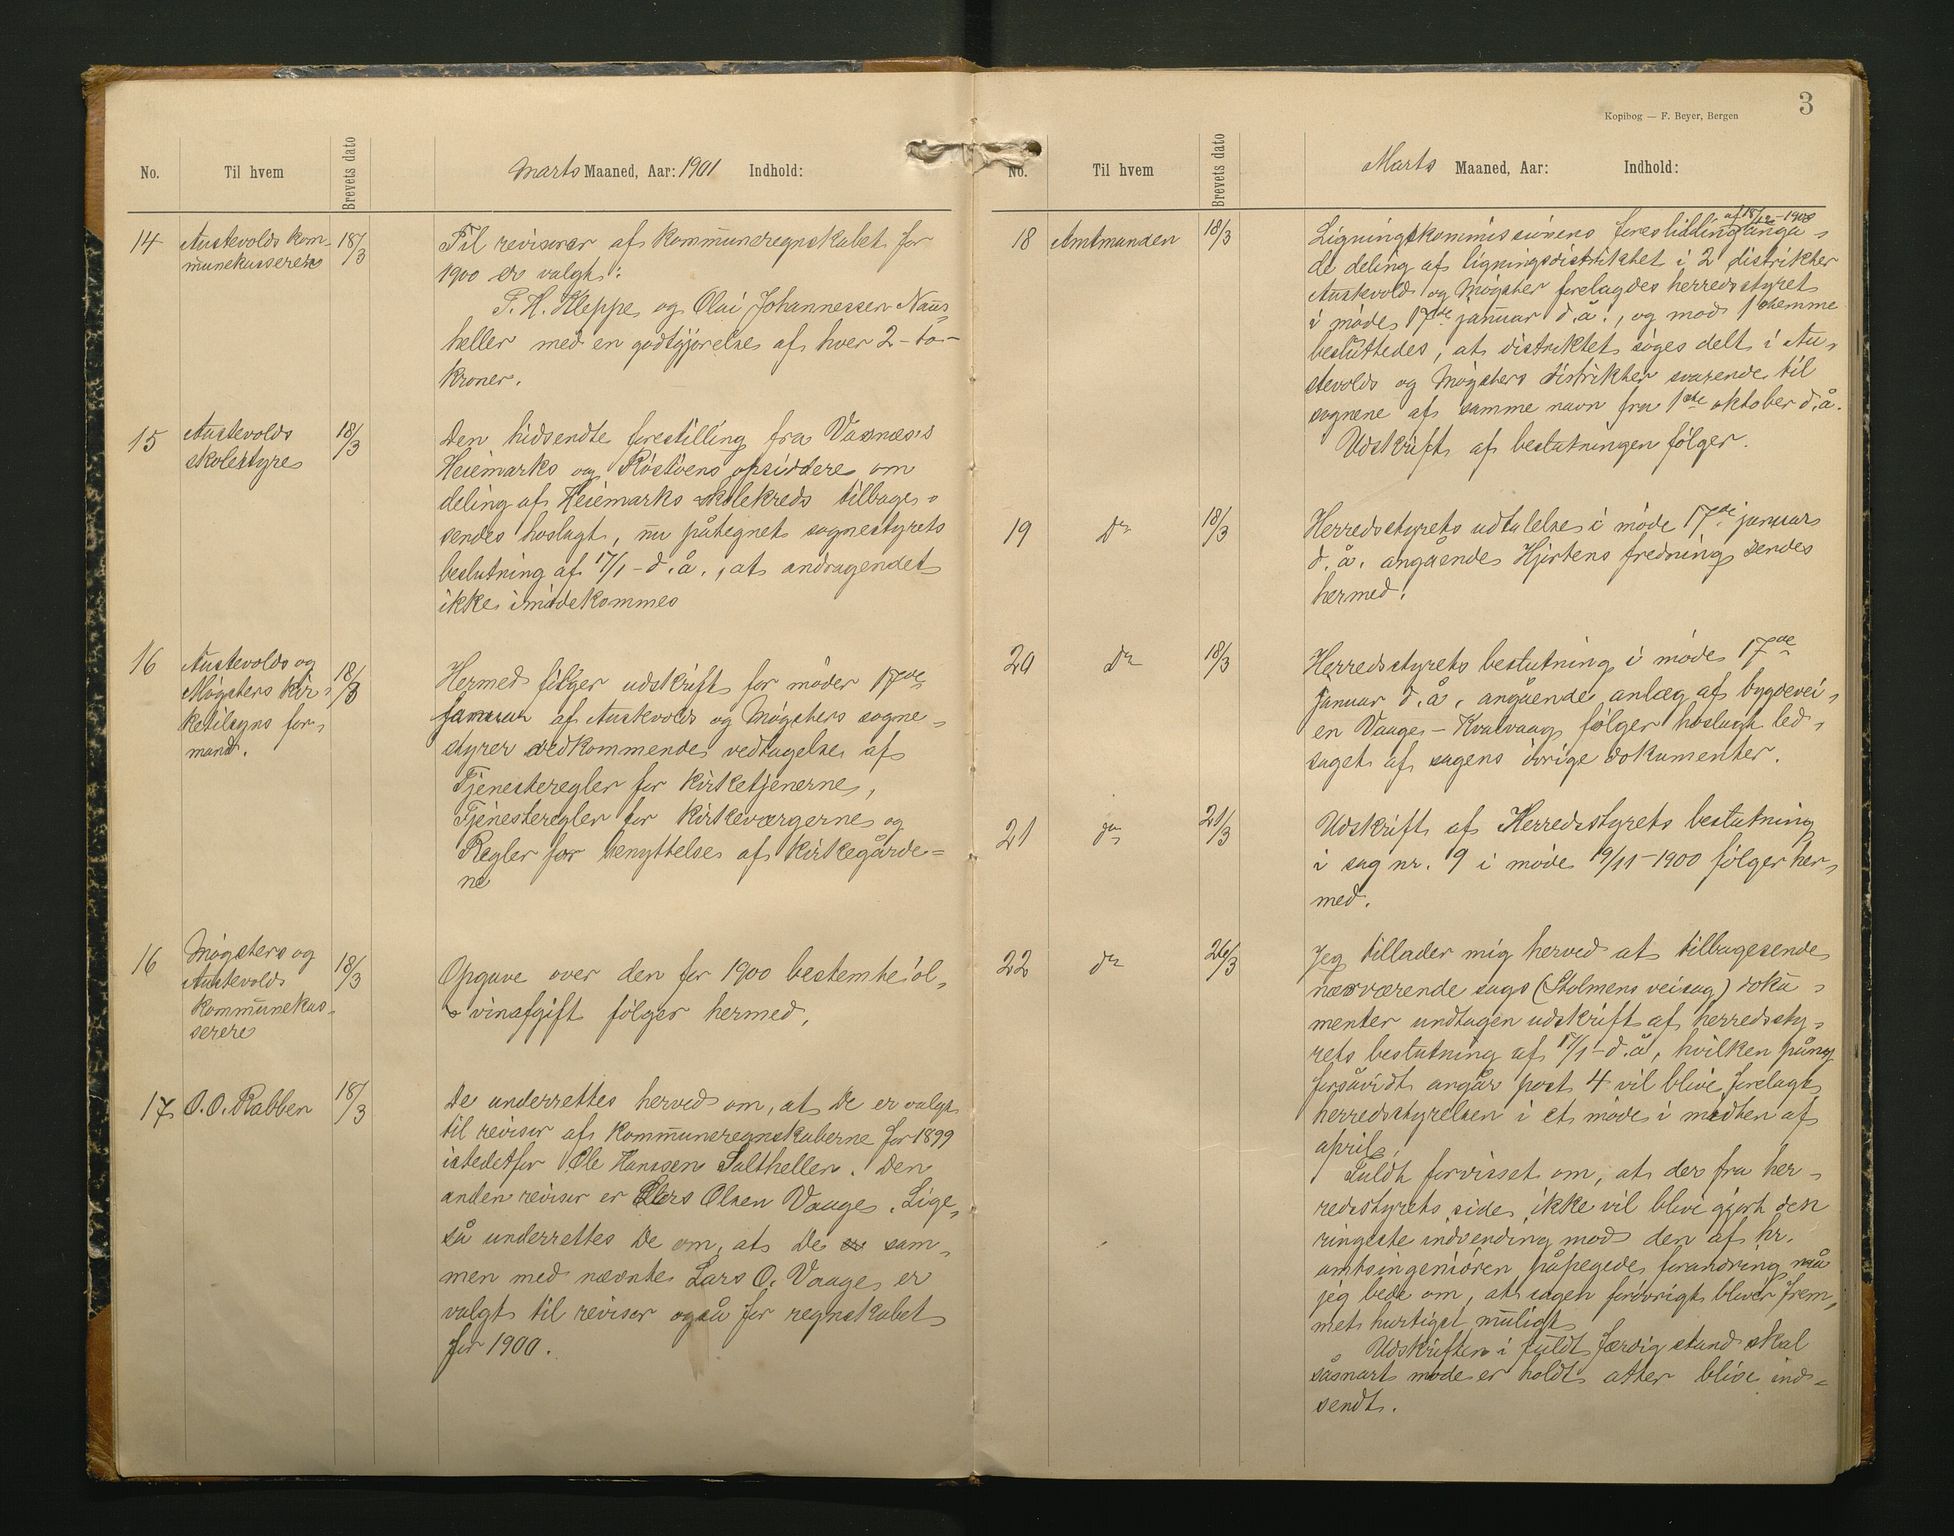 No.
Til hvem
Brevets dato
Marts Maaned, Aar: 1901 Indhold:
14
Austevolds kom-
munekasserer
18/3
Til revisorer af kommuneregnskabet for
1900 er valgt:
P. H. Kleppe og Olai Johannessen Naus-
heller med en godtgjørelse af hver 2 - to -
kroner.
15
Austevolds
skolestyre
18/3
Den hidsendte forestilling fra Vasnæs
Heiemarks og Røstøens opsiddere om
deling af Heiemarks skolekreds tilbage-
sendes hoslagt, nu påtegnet sognestyrets
beslutning af 17/1 - d.å., at andragendet
ikke imødekommes
16
Austevolds og
Møgsters kir-
ketilsyns for-
mand.
18/3
Hermed følger udskrift for møder 17de
januar af Austevolds og Møgsters sogne-
styrer vedkommende vedtagelse af
Tjenesteregler for kirketjenerne,
Tjenesteregler for kirkeværgerne og
Regler for benyttelse af kirkegårde-
ne
16
Møgsters og
Austevolds
kommunekas-
serere
18/3
Opgave over den for 1900 bestemte øl-
& vinafgift følger hermed.
17
O. O. Rabben
18/3
De underrettes herved om, at De er valgt
til revisor af kommuneregnskaberne for 1899
istedetfor Ole Hanssen Saltheller. Den
anden revisor er Lars Olsen Vaage. Lige-
så underrettes De om, at De er sam-
men med nævnte Lars O. Vaage er
valgt til revisor også for regnskabet
for 1900.
Kopibog — F. Beyer, Bergen
3
No.
Til hvem
Brevets dato
Marts Maaned, Aar: Indhold:
18
Amtmanden
18/3
af 18/12-1900
Ligningskommissionens forestilling anga-
de deling af ligningsdistriktet i 2 distrikter
Austevold og Møgster forelagdes herredsstyret
i møde 17de januar d.å., og mod 1 stemme
besluttedes, at distriktet søges delt i Au-
stevolds og Møgsters distrikter svarende til
sognene af samme navn fra 1ste oktober d.å.
Udskrift af beslutningen følger.
19
Do
18/3
Herredsstyrets udtalelse i møde 17de januar
d.å. angående Hjortens fredning sendes
hermed.
20
Do
18/3
Herredsstyrets beslutning i møde 17de
januar d.å. angående anlæg af bygdevei-
en Vaage - Kvalvaag følger hoslagt led-
saget af sagens øvrige dokumenter.
21
do
21/3
Udskrift af Herredsstyrets beslutning
i sag nr. 9 i møde 19/11-1900 følger her-
med.
22
do
26/3
Jeg tillader mig herved at tilbagesende
nærværende sags (Stolmens veisag) doku-
menter undtagen udskrift af herredssty-
rets beslutning af 17/1 - d.å, hvilken påny
forsåvidt angår post 4 vil blive forelagt
herredsstyrelsen i et møde i midten af
april.
Fuldt forvisset om, at der fra her-
redsstyrets side ikke vil blive gjort den
ringeste indvending mod den af hr.
amtsingeniøren påpegede forandring må
jeg bede om, at sagen forøvrigt bliver frem-
met hurtigst muligt.
Udskriften i fuldt færdig stand skal
såsnart møde er holdt atter blive ind-
sendt.